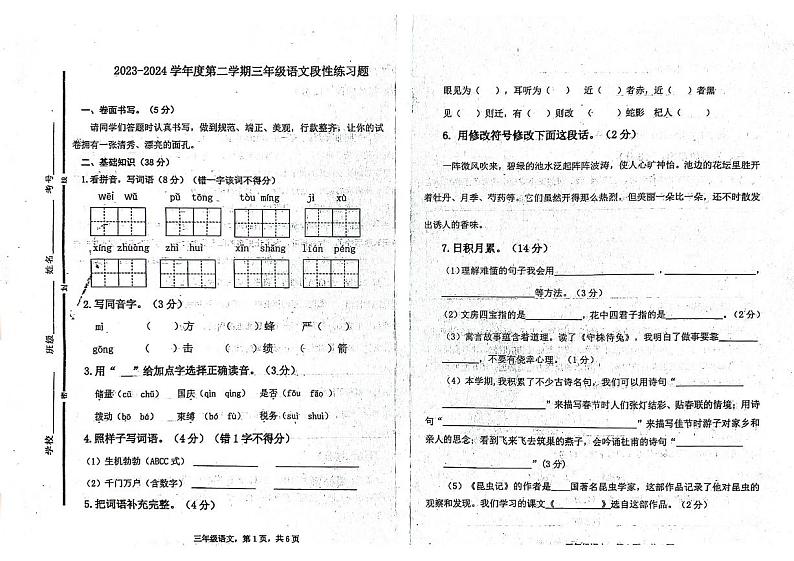 2023-2024 学年度第二学期三年级语文段性练习题
一、卷面书写。（5 分）
请同学们答题时认真书写，做到规范、端正、美观，行款整齐，让你的试
卷拥有一张清秀、漂亮的面孔。
二、基础知识（38 分）
1.看拼音，写词语（8 分）（错一字该词不得分）
wēi wǔ pǔ tōng tòu míng jì xù
xíng zhuàng zhì huì xīn shǎng lián péng
2.写同音字。（3 分）
mì （ ）方 （ ）蜂 严（ ）
gōng （ ）击 （ ）绩 （ ）箭
3.用“ ”给加点字选择正确读音。（3 分）
储量（cǔ chǔ） 国庆（qìn qìng） 是否（fǒu fǎo）
拨动（bō bá） 束缚（bó fù） 税务（suì shuì）
4.照样子写词语。（4 分）（错 1 字不得分）
（1）生机勃勃（ABCC 式）
（2）千门万户（含数字）
5.把词语补充完整。（4 分）
三年级语文，第 1 页，共 6 页
考号
姓名
班级
学校
封
密
眼见为（ ），耳听为（ ） 近（ ）者赤，近（ ）者黑
见（ ）则迁，有（ ）则改 （ ）蛇影 杞人（ ）
6. 用修改符号修改下面这段话。（2 分）
一阵微风吹来，碧绿的池水泛起阵阵波涛，使人心旷神怡。池边的花坛里胜开
着牡丹、月季、芍药等。它们虽然开得那么热烈。但美丽一朵比一朵，还不时散发
出诱人的香味。
7.日积月累。（14 分）
（1）理解难懂的句子我会用 ， ，
等方法。（3 分）
（2）文房四宝指的是 ，花中四君子指的是 。（2 分）
（3）寓言故事蕴含着道理。读了《守株待兔》，我明白了做事要靠
，不要有侥幸心理。（1 分）
（4）本学期，我积累了不少古诗名句，我们可以用诗句“
”来描写春节时人们张灯结彩、贴春联的情境；用诗
句“ ”来描写佳节时游子对家乡和
亲人的思念；看到飞来飞去筑巢的燕子，会吟诵杜甫的诗句“
”（3 分）
（5）《昆虫记》的作者是 国著名昆虫学家，这部作品记录了他对昆虫的
观察和发现。我们学习的课文《 》选自这部作品。（2 分）